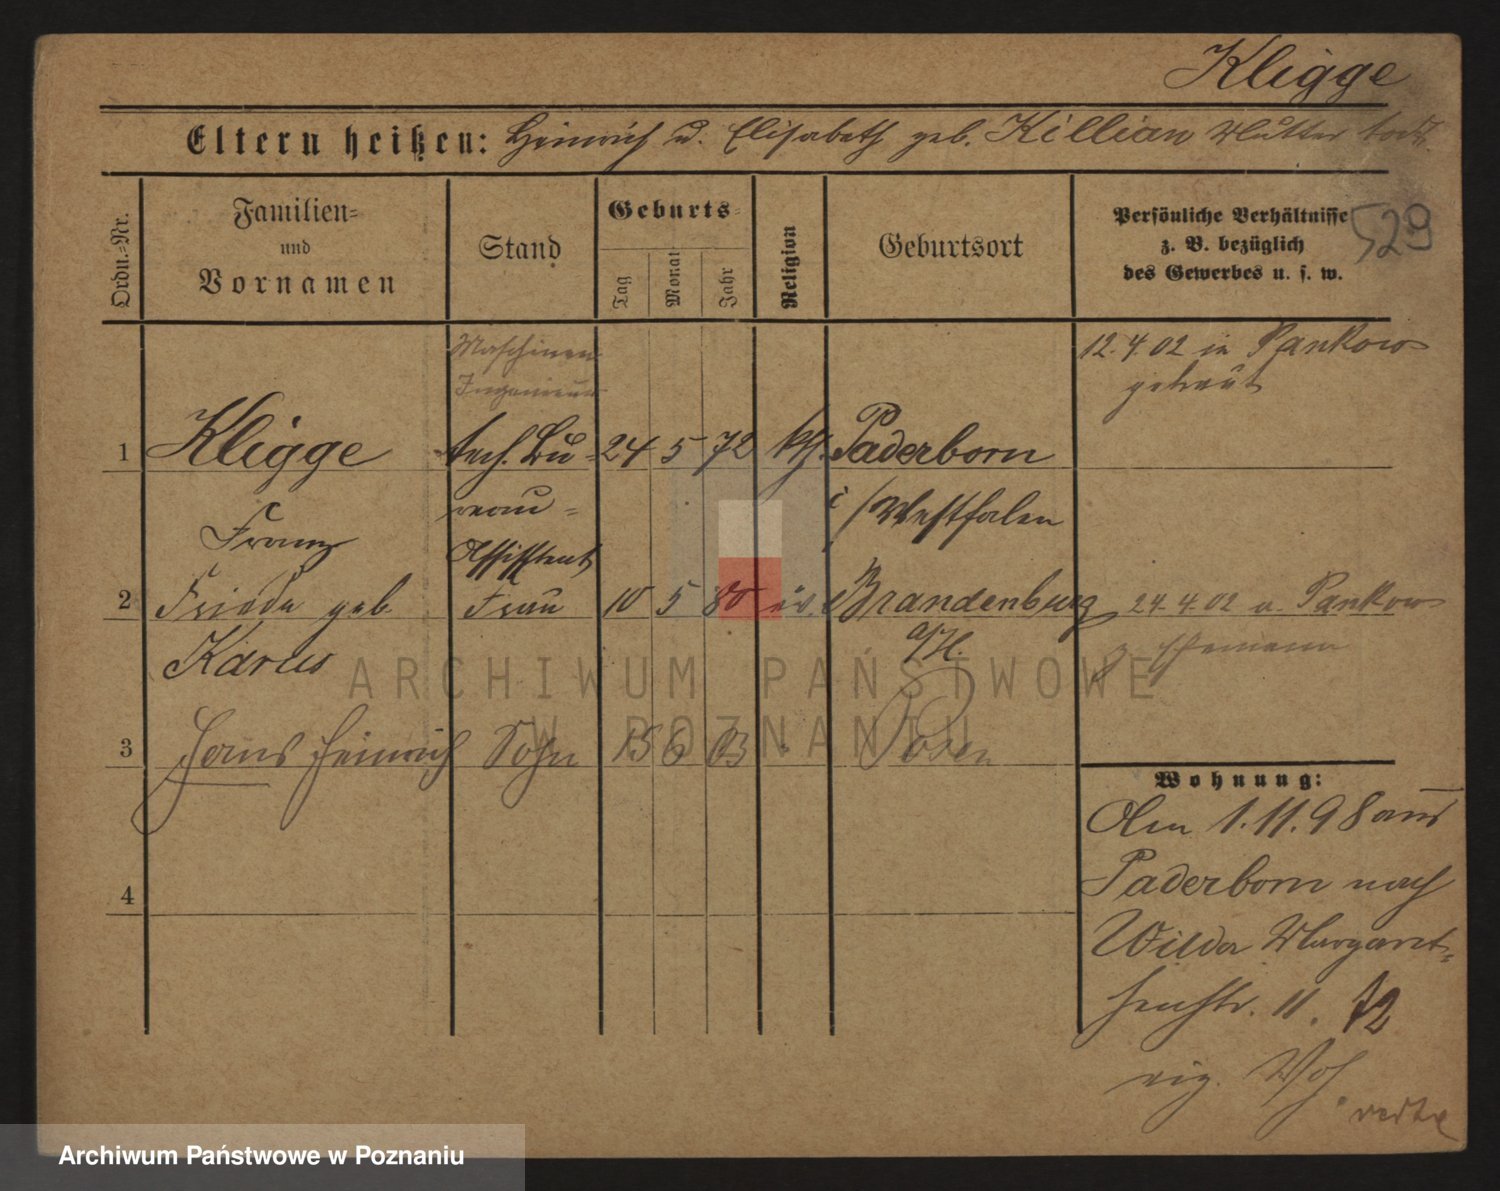 Kligge
Eltern heißen: Heinrich u. Elisabeth geb. Killian Mutter todt.
Ordn.-Nr.
Familien-
und
Vornamen
Stand
Geburts-
Tag
Monat
Jahr
Religion
Geburtsort
Persönliche Verhältnisse
z. B. bezüglich
des Gewerbes u. s. w.
529
Maschinen
Ingenieur
12.4.02 in Pankow
getraut
1 Kligge tech. Bu- 24 5 72 kth. Paderborn
Franz reau- i/Westfalen
Assistent
2 Frieda geb. Frau 10 5 80 ev. Brandenburg 24.4.02 a. Pankow
Karus a/H. z. Ehemann
3 Hans Heinrich Sohn 15 6 03 " Posen
4
Wohnung:
Den 1.11.98 aus
Paderborn nach
Wilda Margaret-
henstr. 11. 12
eig. Woh.
verte
ARCHIWUM PAŃSTWOWE
W POZNANIU
Archiwum Państwowe w Poznaniu